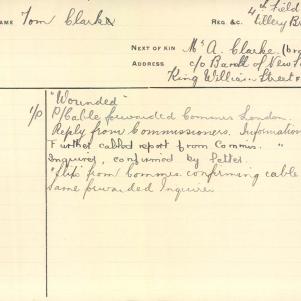 NAME Tom Clarke
REG &C. 4th Field
tillery Br
NEXT OF KIN Mr A. Clarke. (bro
ADDRESS c/o Bank of New
King William Street
"Wounded"
P/Cable forwarded Commrs London.
Reply from Commissioners. Information
Further cabled report from Commrs. "
Inquirer, confirmed by letter.
"Flix" from Commrs. confirming cable
Same forwarded Inquirer